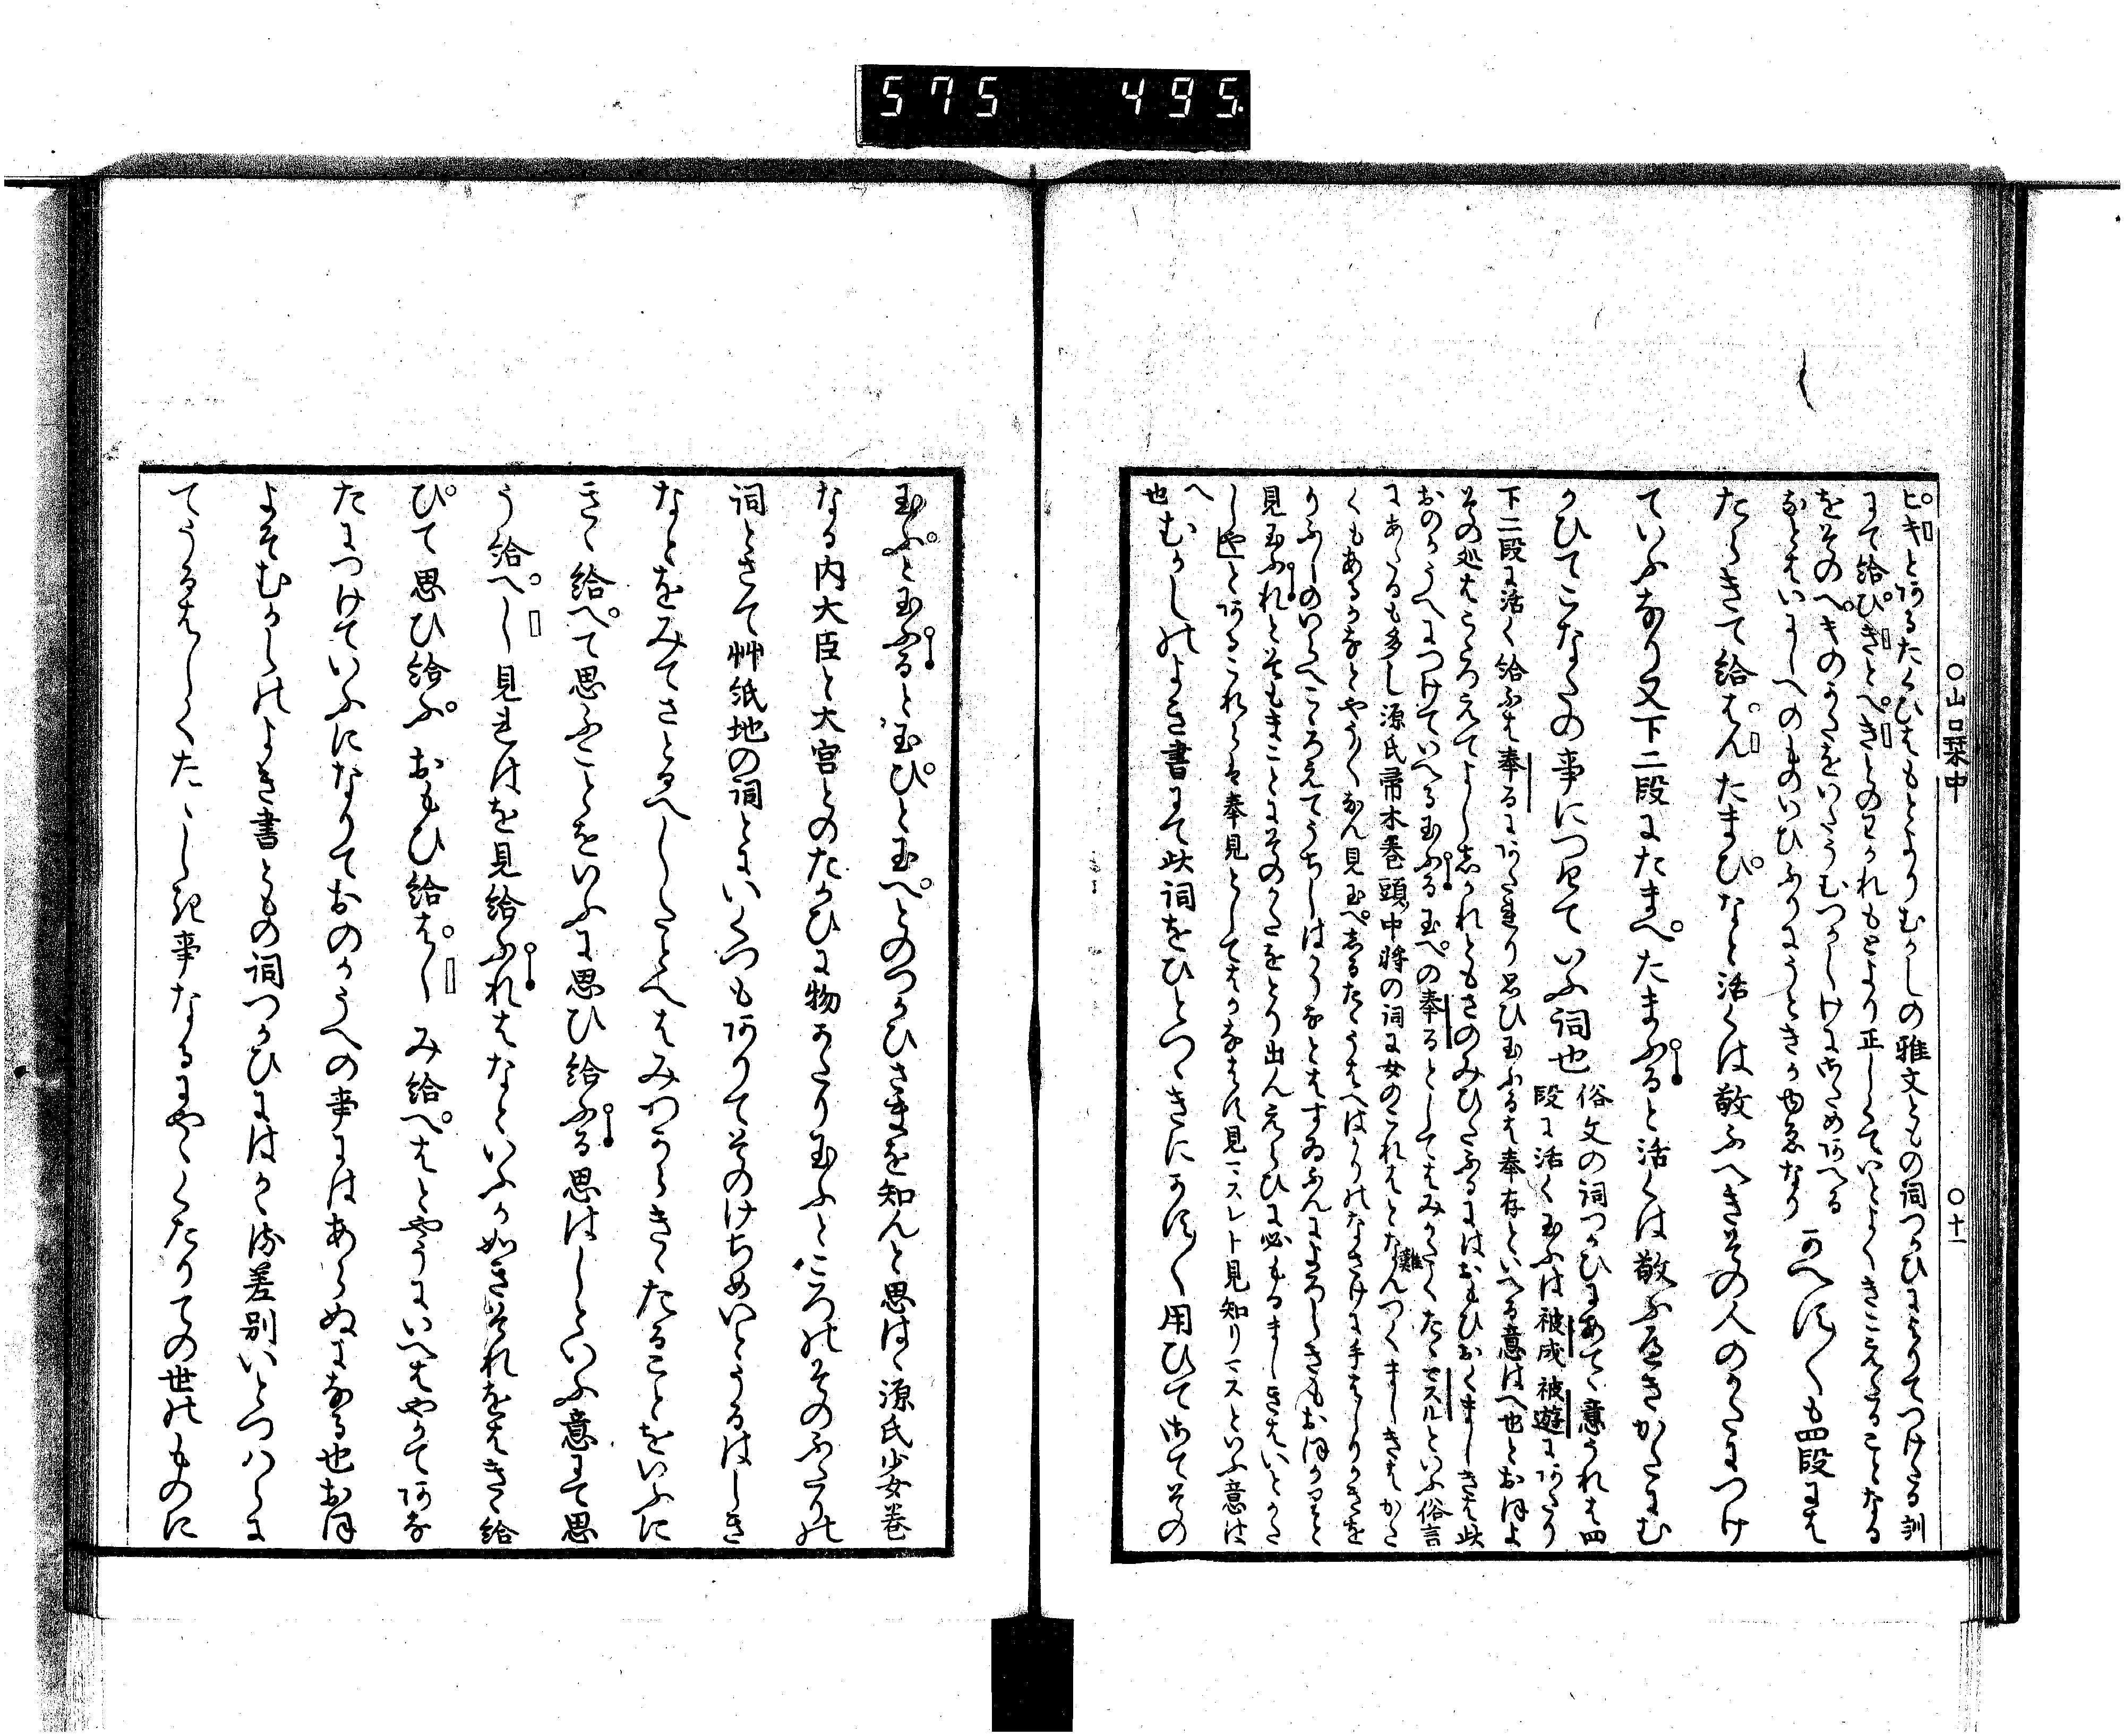 575 495
○山口栞中 ○十一
ピキとあるたくひはもとよりむかしの雅文ともの詞つかひによりてつけたる訓
にて給ひきとへきとのわかれもとより正しくていとよくきこえたることなる
をそのへきのかたをいたうむつかしけにさためいへる
なとはいにしへのものいひふりにうときか
かへす〳〵も四段には
たらきて給はんたまひなと活くは敬ふへきその人のかたにつけ
ていふなり又下二段にたまへたまふると活くは敬ふへきかたにむ
かひてこなたの事につきていふ詞也
俗文の詞つかひにあてゝ意うれは四
段に活く玉ふは被成被遊にあたり
下二段に活く給ふは奉るにあたれり思ひ玉ふるは奉存といへる意はへ也とおほよ
その処はこゝろえてよししかれともさのみひたふるにはおもひおくましきは此
おのかうへにつけていへる玉ふる玉への奉るとしてはみかたくたゝマスルといふ俗言
にあたるも多し源氏帚木巻頭中将の詞に女のこれはとなん難つくましきはかた
くもあるかなとやう〳〵なん見玉へしるたゝうはへはかりのなさけに手はしりかきを
りふしのいらへこゝろえてうちしはかりなとはすゐふんによろしきもおほかりと
見玉ふれとそもまことにそのかたをとり出んえらひに必もるましきはいとかた
しやとあるこれらは奉見としてはかなはす見マスレト見知リマスといふ意は
へ也
むかしのよき書にて此詞をひとつゝきにかへす〳〵用ひてさてその
玉ふと玉ふると玉ひと玉へとのつかひさまを知んと思はゝ源氏少女巻
なる内大臣と大宮とのたかひに物かたり玉ふところのそのふたりの
詞とさて艸紙地の詞とにいくつもありてそのけちめいとうるはしき
なとをみてさとるへしたとへはみつからきゝたることをいふに
きゝ給へて思ふことをいふに思ひ給ふる思はしといふ意にて思
う給へし見れはを見給ふれはなといふか如きそれをはきゝ給
ひて思ひ給ふおもひ給はしみ給へはとやうにいへはやかてあな
たにつけていふになりておのかうへの事にはあらぬになる也おほ
よそむかしのよき書ともの詞つかひにはかゝる差別いとつハらに
てうるはしくたゝしき事なるにやゝくたりての世のものに